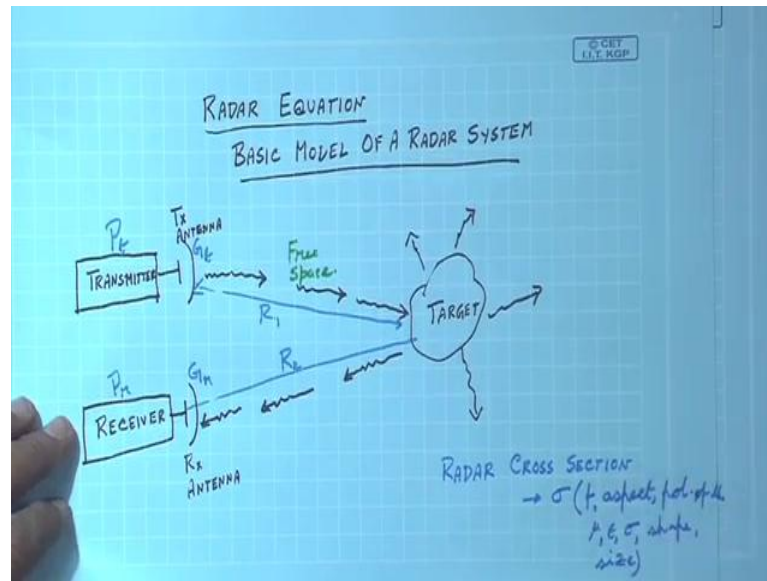 © CET
I.I.T. KGP
RADAR EQUATION
BASIC MODEL OF A RADAR SYSTEM
Tx
ANTENNA
Pt
Gt
TRANSMITTER
Free
space.
R1
TARGET
Pr
Gr
RECEIVER
Rx
ANTENNA
RADAR CROSS SECTION
→ σ (f, aspect, pol. of the
μ, ε, σ, shape,
size)